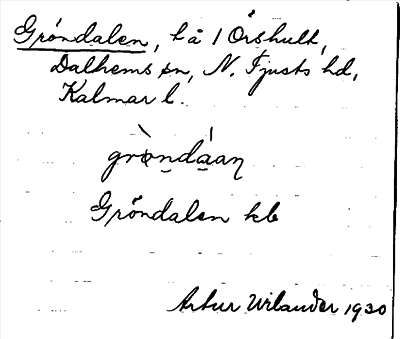 Gröndalen, bå 1 Örshult,
Dalhems sn, N. Tjusts hd,
Kalmar l.
gròndáaη
Gröndalen kb
Artur Wilander 1930